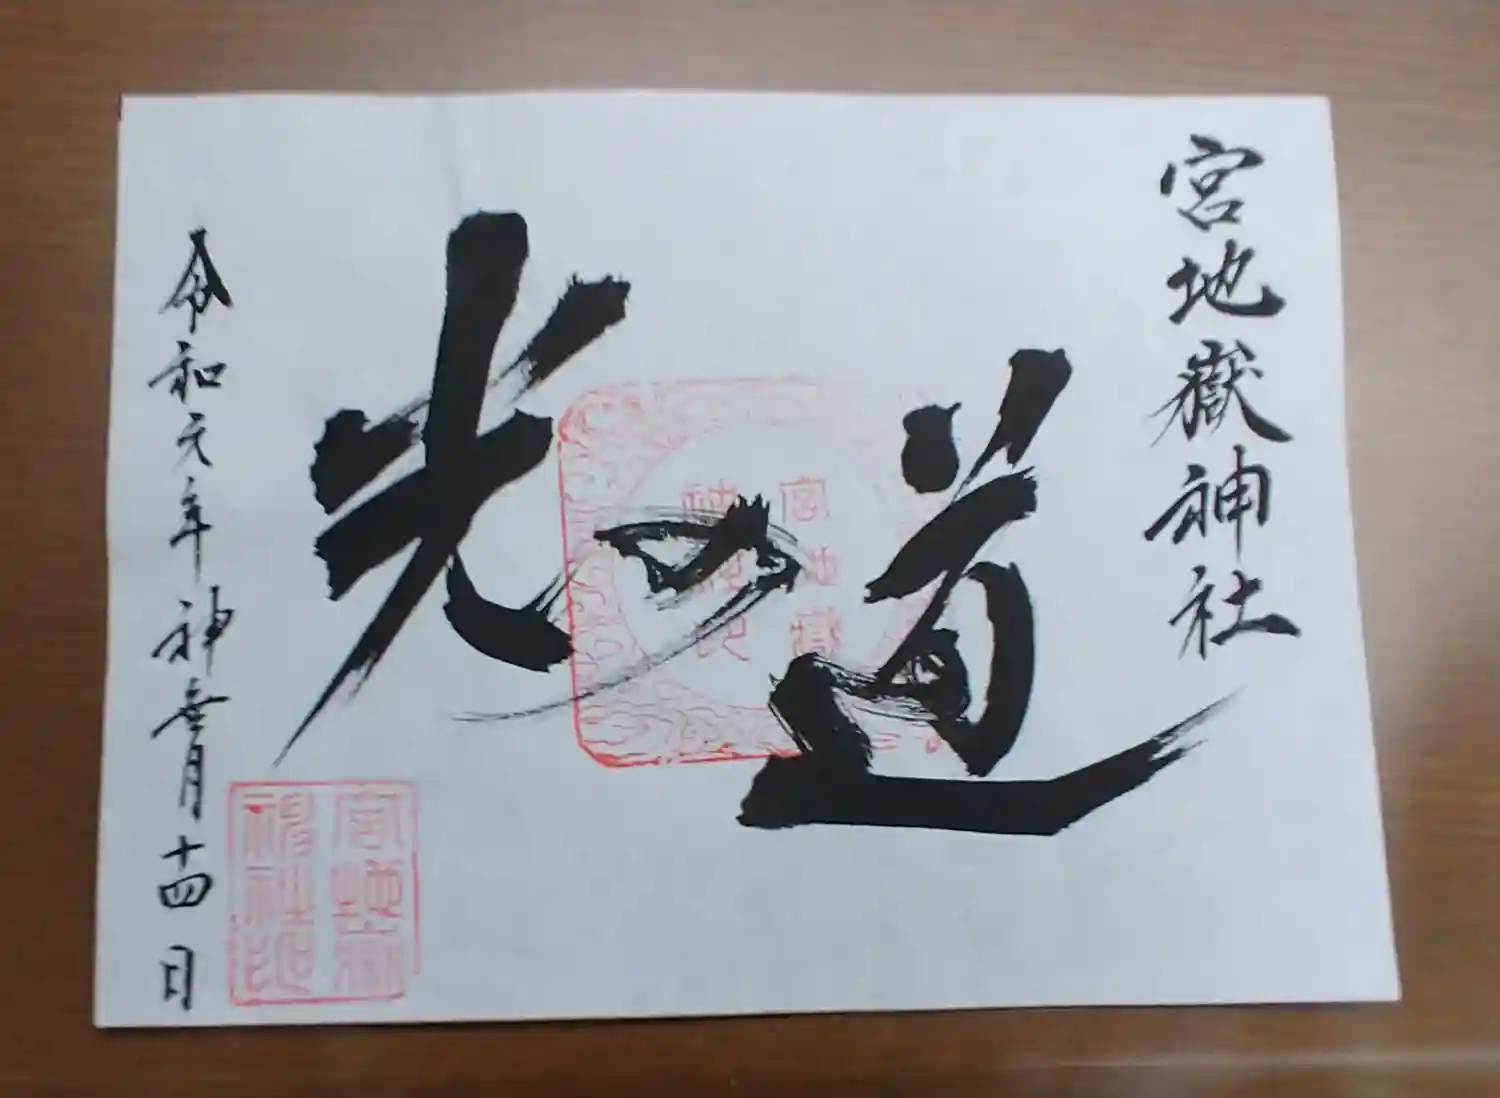 宮地嶽神社
光の道
宮地嶽
神社印
令和元年神無月十四日
宮地嶽
神社印